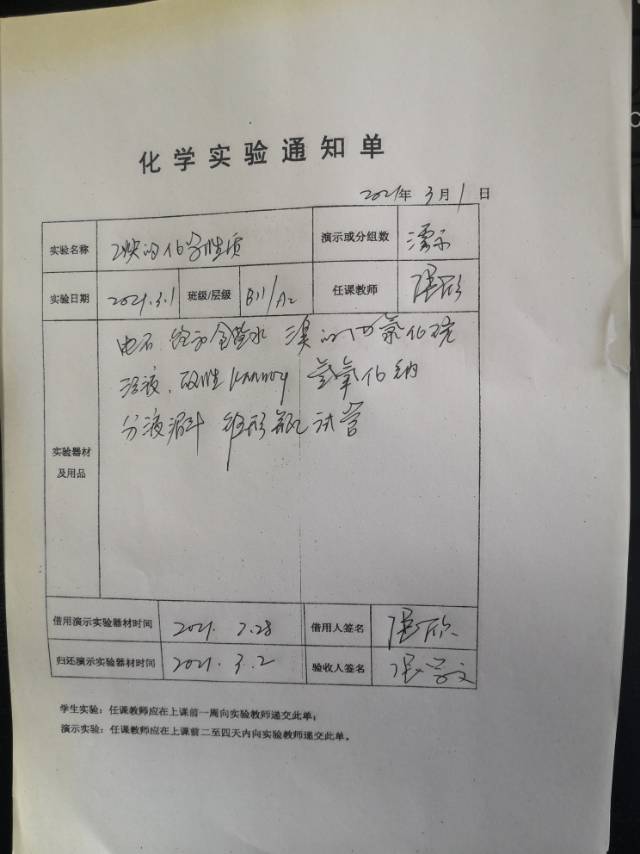 化学实验通知单
2021年 3月 1日
实验名称 乙炔的化学性质 演示或分组数 演示
实验日期 2021.3.1 班级/层级 B11/A2 任课教师
电石、饱和食盐水 溴的四氯化碳
溶液、酸性KMnO4 氢氧化钠
实验器材
及用品
分液漏斗 锥形瓶 试管
借用演示实验器材时间 2021. 2.28 借用人签名
归还演示实验器材时间 2021. 3.2 验收人签名
学生实验:任课教师应在上课前一周向实验教师递交此单;
演示实验:任课教师应在上课前二至四天内向实验教师递交此单。